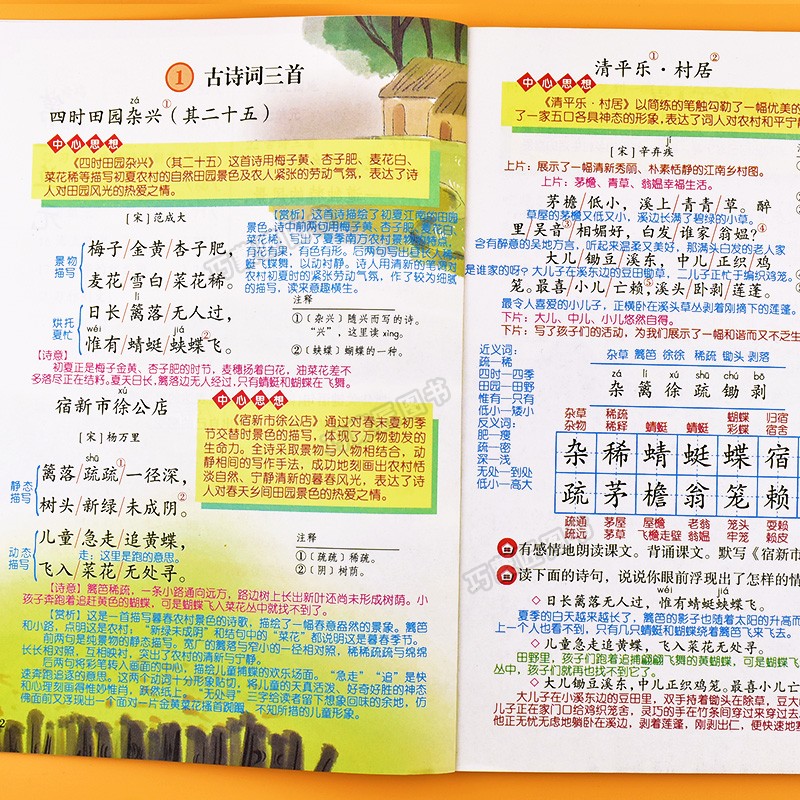 1 古诗词三首
zá
四时田园杂兴①（其二十五）
中心思想
《四时田园杂兴》（其二十五）这首诗用梅子黄、杏子肥、麦花白、
菜花稀等描写初夏农村的自然田园景色及农人紧张的劳动气氛，表达了诗
人对田园风光的热爱之情。
［宋］范成大
景物描写
梅子/金黄/杏子肥，
麦花/雪白/菜花稀。
烘托夏忙
日长/篱落/无人过，
wéi jiá
惟有/蜻蜓/蛱蝶②飞。
【赏析】这首诗描绘了初夏江南的田园
景色。诗中前两句用梅子黄、杏子肥、麦花白、
菜花稀，写出了夏季南方农村景物的特点，
有花有果，有色有形。后两句写出昼长人稀，
蜓飞蝶舞，以动衬静。诗人用清新的笔调对
农村初夏时的紧张劳动气氛，作了较为细腻
的描写，读来意趣横生。
注释
①〔杂兴〕随兴而写的诗。
“兴”，这里读 xìng。
②〔蛱蝶〕蝴蝶的一种。
【诗意】
初夏正是梅子金黄、杏子肥的时节，麦穗扬着白花，油菜花差不
多落尽正在结籽。夏天日长，篱边无人经过，只有蜻蜓和蝴蝶在飞舞。
xú
宿新市徐公店
［宋］杨万里
中心思想
《宿新市徐公店》通过对春末夏初季
节交替时景色的描写，体现了万物勃发的
生命力。全诗采取景物与人物相结合，动
静相间的写作手法，成功地刻画出农村恬
淡自然、宁静清新的暮春风光，表达了诗
人对春天乡间田园景色的热爱之情。
静态描写
shū
篱落/疏疏①/一径深，
树头/新绿/未成阴②。
动态描写
儿童/急走/追黄蝶，
走：这里是跑的意思。
飞入/菜花/无处寻。
注释
①〔疏疏〕稀疏。
②〔阴〕树荫。
【诗意】篱笆稀疏，一条小路通向远方，路边树上长出新叶还尚未形成树荫。小
孩子奔跑着追赶黄色的蝴蝶，可是蝴蝶飞入菜花丛中就找不到了。
【赏析】这是一首描写暮春农村景色的诗歌，描绘了一幅春意盎然的景象。篱笆
和小路，点明这是农村；“新绿未成阴”和结句中的“菜花”都说明这是暮春季节。
前两句是纯景物的静态描写。宽广的篱落与窄小的一径相对照，稀稀疏疏与绵绵
长长相对照，互相映衬，突出了农村的清新与宁静。
后两句将彩笔转入画面的中心，描绘儿童捕蝶的欢乐场面。“急走”“追”是快
速奔跑追逐的意思。这两个动词十分形象贴切，将儿童的天真活泼、好奇好胜的神态
和心理刻画得惟妙惟肖，跃然纸上。“无处寻”三字给读者留下想象回味的余地，仿
佛面前又浮现出一个面对一片金黄菜花搔首踟蹰、不知所措的儿童形象。
2
清平乐①·村居②
中心思想
《清平乐·村居》以简练的笔触勾勒了一幅优美的
了一家五口各具神态的形象，表达了词人对农村和平宁
［宋］辛弃疾
上片：展示了一幅清新秀丽、朴素恬静的江南乡村图。
上片：茅檐、青草、翁媪幸福生活。
茅檐/低小，溪上/青青/草。醉
草屋的茅檐又低又小，溪边长满了碧绿的小草。
里/吴音③/相媚好，白发/谁家/翁媪④？
含有醉意的吴地方言，听起来温柔又美好，那满头白发的老人家
大儿/锄豆/溪东，中儿/正织/鸡
是谁家的呀？大儿子在溪东边的豆田锄草，二儿子正忙于编织鸡笼。
笼。最喜/小儿/亡赖⑤，溪头/卧剥/莲蓬。
最令人喜爱的小儿子，正横卧在溪头草丛剥着刚摘下的莲蓬。
下片：大儿、中儿、小儿悠然自得。
下片：写了孩子们的活动，为我们展示了一幅和谐而又不乏生
近义词：
疏—稀
四时—四季
田园—田野
惟有—只有
低小—矮小
反义词：
肥—瘦
疏—密
深—浅
无处—到处
低小—高大
杂草 篱笆 徐徐 稀疏 锄头 剥落
zá lí xú shū chú bō
杂 篱 徐 疏 锄 剥
杂草 稀疏 蝴蝶 归宿
杂物 稀释 蜻蜓 蜻蜓 彩蝶 宿舍
杂 稀 蜻 蜓 蝶 宿
疏 茅 檐 翁 笼 赖
疏通 茅屋 屋檐 老翁 笼头 耍赖
疏远 茅草 飞檐走壁 翁媪 牢笼 赖皮
有感情地朗读课文。背诵课文。默写《宿新市
读下面的诗句，说说你眼前浮现出了怎样的情
jiá
◇日长篱落无人过，惟有蜻蜓蛱蝶飞。
夏季的白天越来越长了，篱笆的影子也随着太阳的升高而
上一个人也看不到，只有几只蜻蜓和蝴蝶绕着篱笆飞来飞去。
◇儿童急走追黄蝶，飞入菜花无处寻。
田野里，孩子们跑着追捕翩翩飞舞的黄蝴蝶，可是蝴蝶飞
丛中，孩子们就再也找不到它了。
◇大儿锄豆溪东，中儿正织鸡笼。最喜小
大儿子在小溪东边的豆田里，双手持着锄头在除草，豆大
儿子正在家门口给鸡织笼舍，灵巧的手在竹条间穿过来穿过去
他正无忧无虑地躺卧在溪边，剥着莲蓬，刚剥出仁，便快速地塞